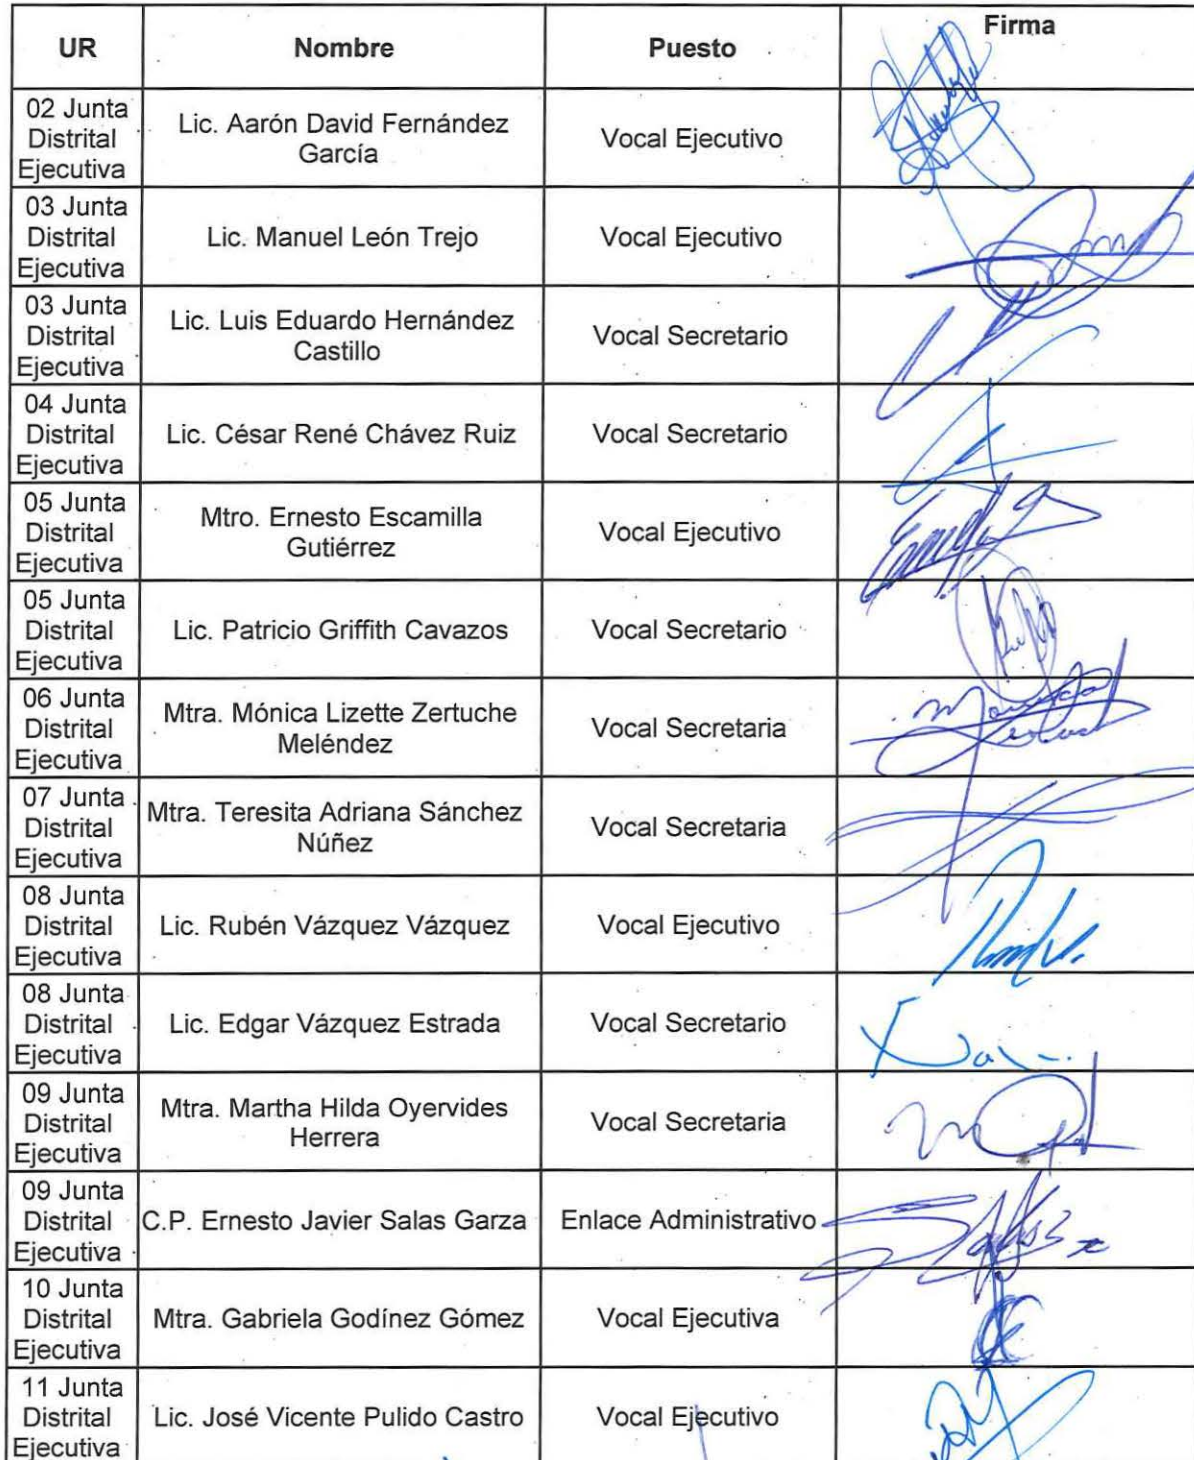 UR Nombre Puesto Firma
02 Junta
Distrital
Ejecutiva
Lic. Aarón David Fernández
García
Vocal Ejecutivo
03 Junta
Distrital
Ejecutiva
Lic. Manuel León Trejo
Vocal Ejecutivo
03 Junta
Distrital
Ejecutiva
Lic. Luis Eduardo Hernández
Castillo
Vocal Secretario
04 Junta
Distrital
Ejecutiva
Lic. César René Chávez Ruiz
Vocal Secretario
05 Junta
Distrital
Ejecutiva
Mtro. Ernesto Escamilla
Gutiérrez
Vocal Ejecutivo
05 Junta
Distrital
Ejecutiva
Lic. Patricio Griffith Cavazos
Vocal Secretario
06 Junta
Distrital
Ejecutiva
Mtra. Mónica Lizette Zertuche
Meléndez
Vocal Secretaria
07 Junta
Distrital
Ejecutiva
Mtra. Teresita Adriana Sánchez
Núñez
Vocal Secretaria
08 Junta
Distrital
Ejecutiva
Lic. Rubén Vázquez Vázquez
Vocal Ejecutivo
08 Junta
Distrital
Ejecutiva
Lic. Edgar Vázquez Estrada
Vocal Secretario
09 Junta
Distrital
Ejecutiva
Mtra. Martha Hilda Oyervides
Herrera
Vocal Secretaria
09 Junta
Distrital
Ejecutiva
C.P. Ernesto Javier Salas Garza
Enlace Administrativo
10 Junta
Distrital
Ejecutiva
Mtra. Gabriela Godínez Gómez
Vocal Ejecutiva
11 Junta
Distrital
Ejecutiva
Lic. José Vicente Pulido Castro
Vocal Ejecutivo